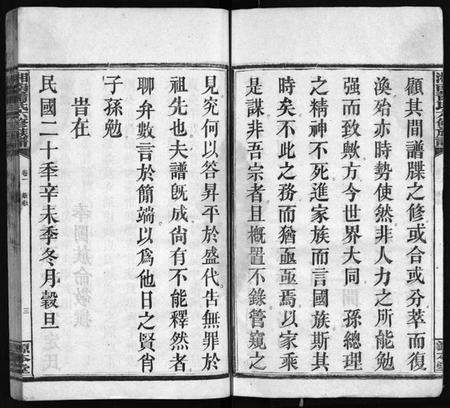 顧其間譜牒之修或合或分萃而復
渙殆亦時勢使然非人力之所能勉
强而致歟方今世界大同　孫總理
之精神不死進家族而言國族斯其
時矣不此之務而猶亟亟焉以家乘
是謀非吾宗者且概置不錄管窺之
見究何以昇平於盛代告無罪於
祖先也夫譜旣成尙有不能釋然者
聊弁數言於簡端以爲他日之賢肖
子孫勉
旹在
民國二十季辛未季冬月穀旦
卷一
三
源本堂